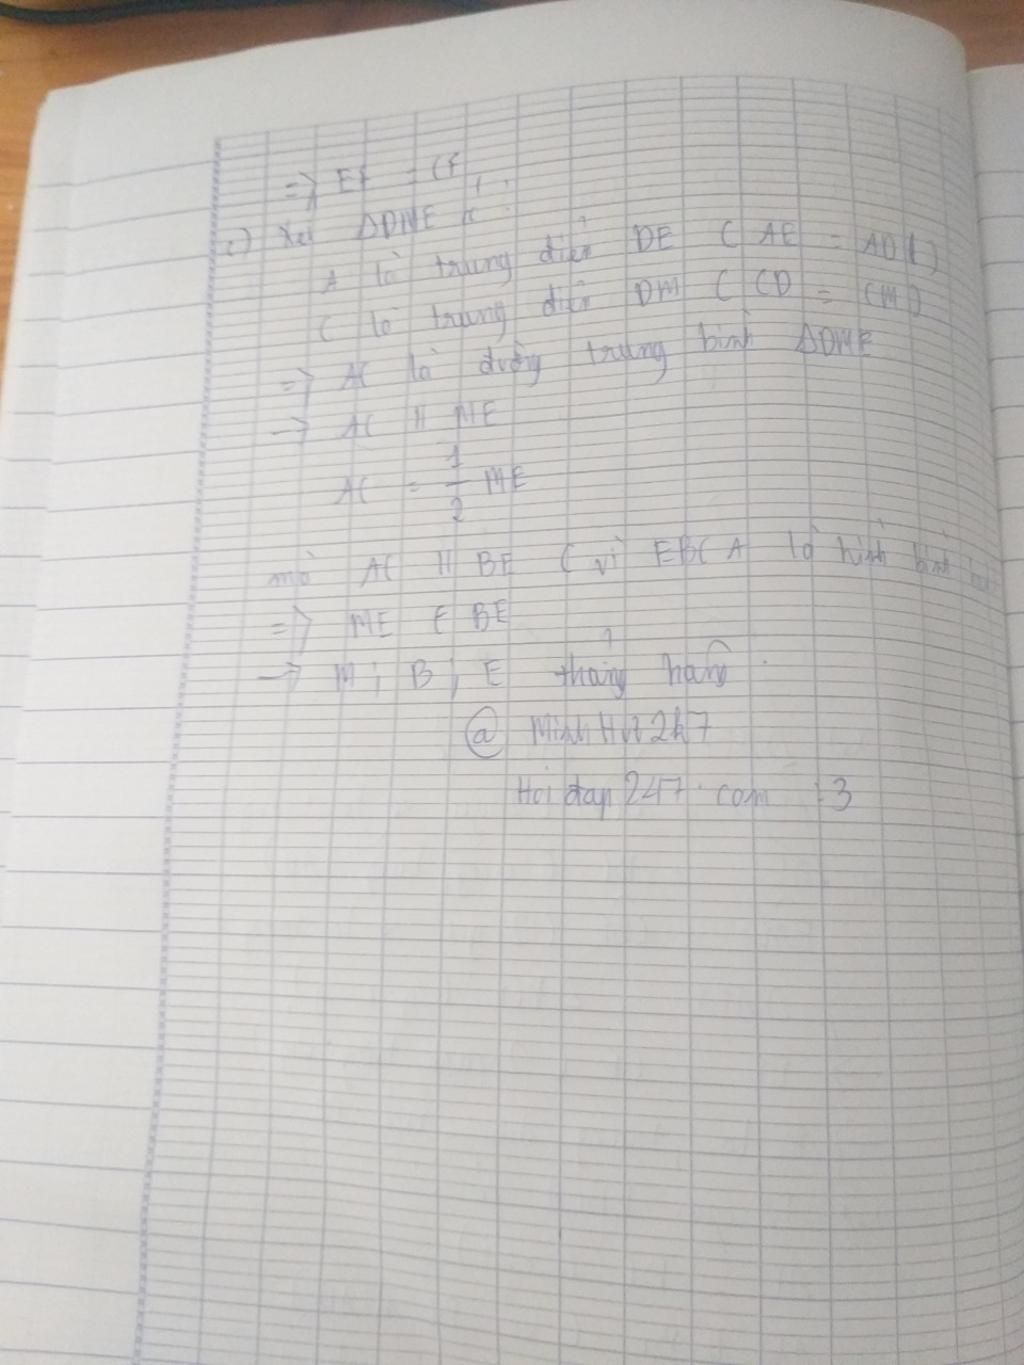 => EF = CF
c) Xét ΔDME có:
A là trung điểm DE ( AE = AD )
C là trung điểm DM ( CD = CM )
=> AC là đường trung bình ΔDME
-> AC // ME
AC = 1/2 ME
mà AC // BE ( vì EBCA là hình bình
=> ME ∈ BE
-> M ; B ; E thẳng hàng .
@ Minh 2k7
Hoidap247.com :3